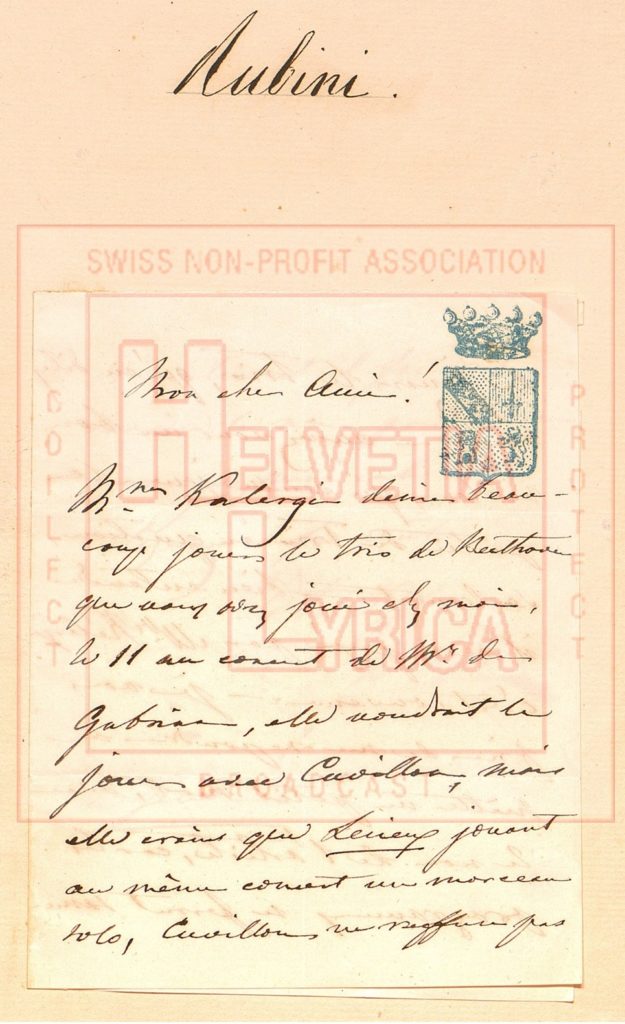 Rubini.
SWISS NON-PROFIT ASSOCIATION
HELVETIA
LYRICA
COLLECT
PROTECT
BROADCAST
Mon cher Ami!
Mme Kalergi désire beau-
coup jouer le trio de Beethoven
que vous avez joué chez moi,
le 11 au concert de Mr. de
elle voudrait le
jouer avec Cuvillon, mais
elle craint que jouant
au même concert un morceau
solo, Cuvillon ne pas